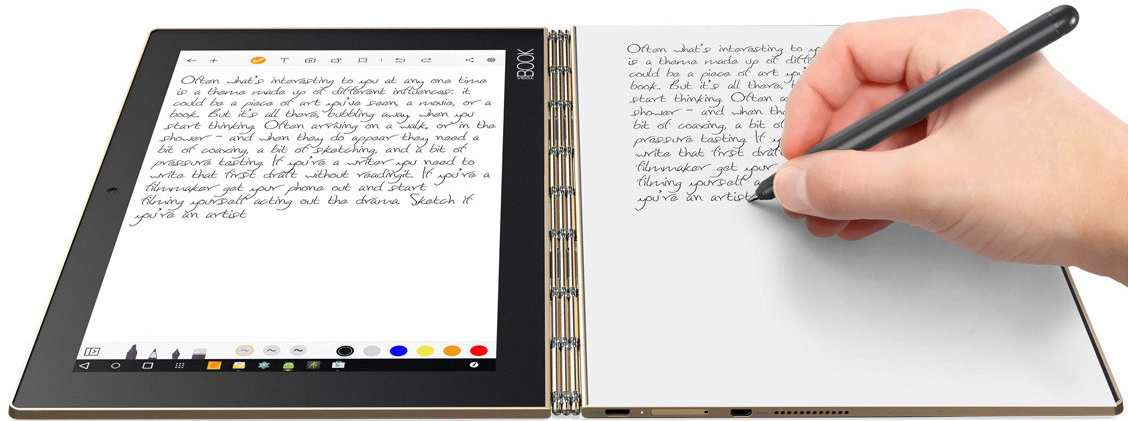 YOGA BOOK
Often what's interesting to you at any one time
is a theme made up of different influences: it
could be a piece of art you've seen, a movie, or a
book. But it's all there, bubbling away when you
start thinking. Often arriving on a walk, or in the
shower – and when they do appear they need a
bit of coaxing, a bit of sketching, and a bit of
pressure testing. If you're a writer you need to
write that first draft without readingit. If you're a
filmmaker get your phone out and start
filming yourself acting out the drama. Sketch if
you're an artist
Often what's interesting to yo
is a theme made up of diffe
could be a piece of art you'
book. But it's all there, b
start thinking. Often a
shower – and when th
bit of coaxing, a bit of
pressure testing. If y
write that first draft
filmmaker get your
filming yourself a
you're an artist